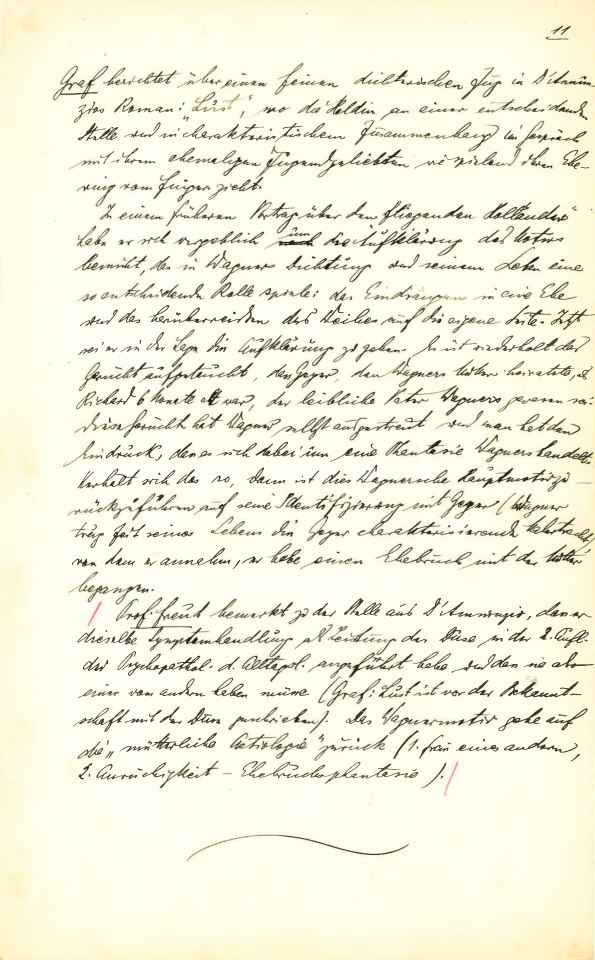 11
Graf berichtet über einen feinen dichterischen Zug in D'Annun-
zios Roman: „Lust", wo die Heldin an einer entscheidenden
Stelle und in charakteristischem Zusammenhang im Gespräch
mit ihrem ehemaligen Jugendgeliebten spielend ihren Ehe-
ring vom Finger zieht.
In einem früheren Vortrag über den fliegenden Holländer"
habe er sich vergeblich um die Aufklärung des Motivs
bemüht, das in Wagners Dichtung und seinem Leben eine
so entscheidende Rolle spiele: das Eindrängen in eine Ehe
und das herüberreissen des Weibes auf die eigene Seite. Jetzt
sei er in der Lage die Aufklärung zu geben. Es ist wiederholt das
Gerücht aufgetaucht, dass Geyer, den Wagners Mutter heiratete, als
Richard 6 Monate alt war, der leibliche Vater Wagners gewesen sei.
Diese Gerücht hat Wagner selbst ausgestreut und man hat den
Eindruck, dass es sich dabei um eine Phantasie Wagners handelt.
Verhält sich das so, dann ist dies Wagnersche Hauptmotiv zu-
rückzuführen auf seine Identifizierung mit Geyer (Wagner
trug Zeit seines Lebens die Geyer charakterisierende
von dem er annahm, er habe einen Ehebruch mit der Mutter
begangen.
Prof: Freud bemerkt zu der Stelle aus D'Annunzio, dass er
dieselbe Symptomhandlung als Leistung der Duse in der 2. Aufl.
der Psychopathol. d. Alltagsl. angeführt habe und dass sie also
einer vom andern haben müsse (Graf: Lust ist vor der Bekannt-
schaft mit der Duse geschrieben). Das Wagnermotiv gehe auf
die „mütterliche Aetiologie" zurück (1. Frau eines andern,
2. Anrüchigkeit – Ehebruchsphantasie).